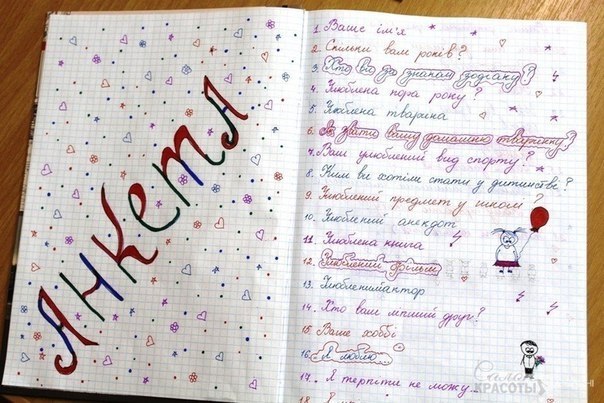 АНКЕТА
1. Ваше ім'я
2. Скільки вам років?
3. Хто ви за знаком зодіаку?
4. Улюблена пора року?
5. Улюблена тварина
6. Як звати вашу домашню тваринку?
7. Ваш улюблений вид спорту?
8. Ким ви хотіли стати у дитинстві?
9. Улюблений предмет у школі?
10. Улюблений анекдот
11. Улюблена книга
12. Улюблений фільм
13. Улюблений актор
14. Хто ваш ліпший друг?
15. Ваше хоббі
16. Я люблю
17. Я терпіти не можу...
18. Я
КРАСОТЫ